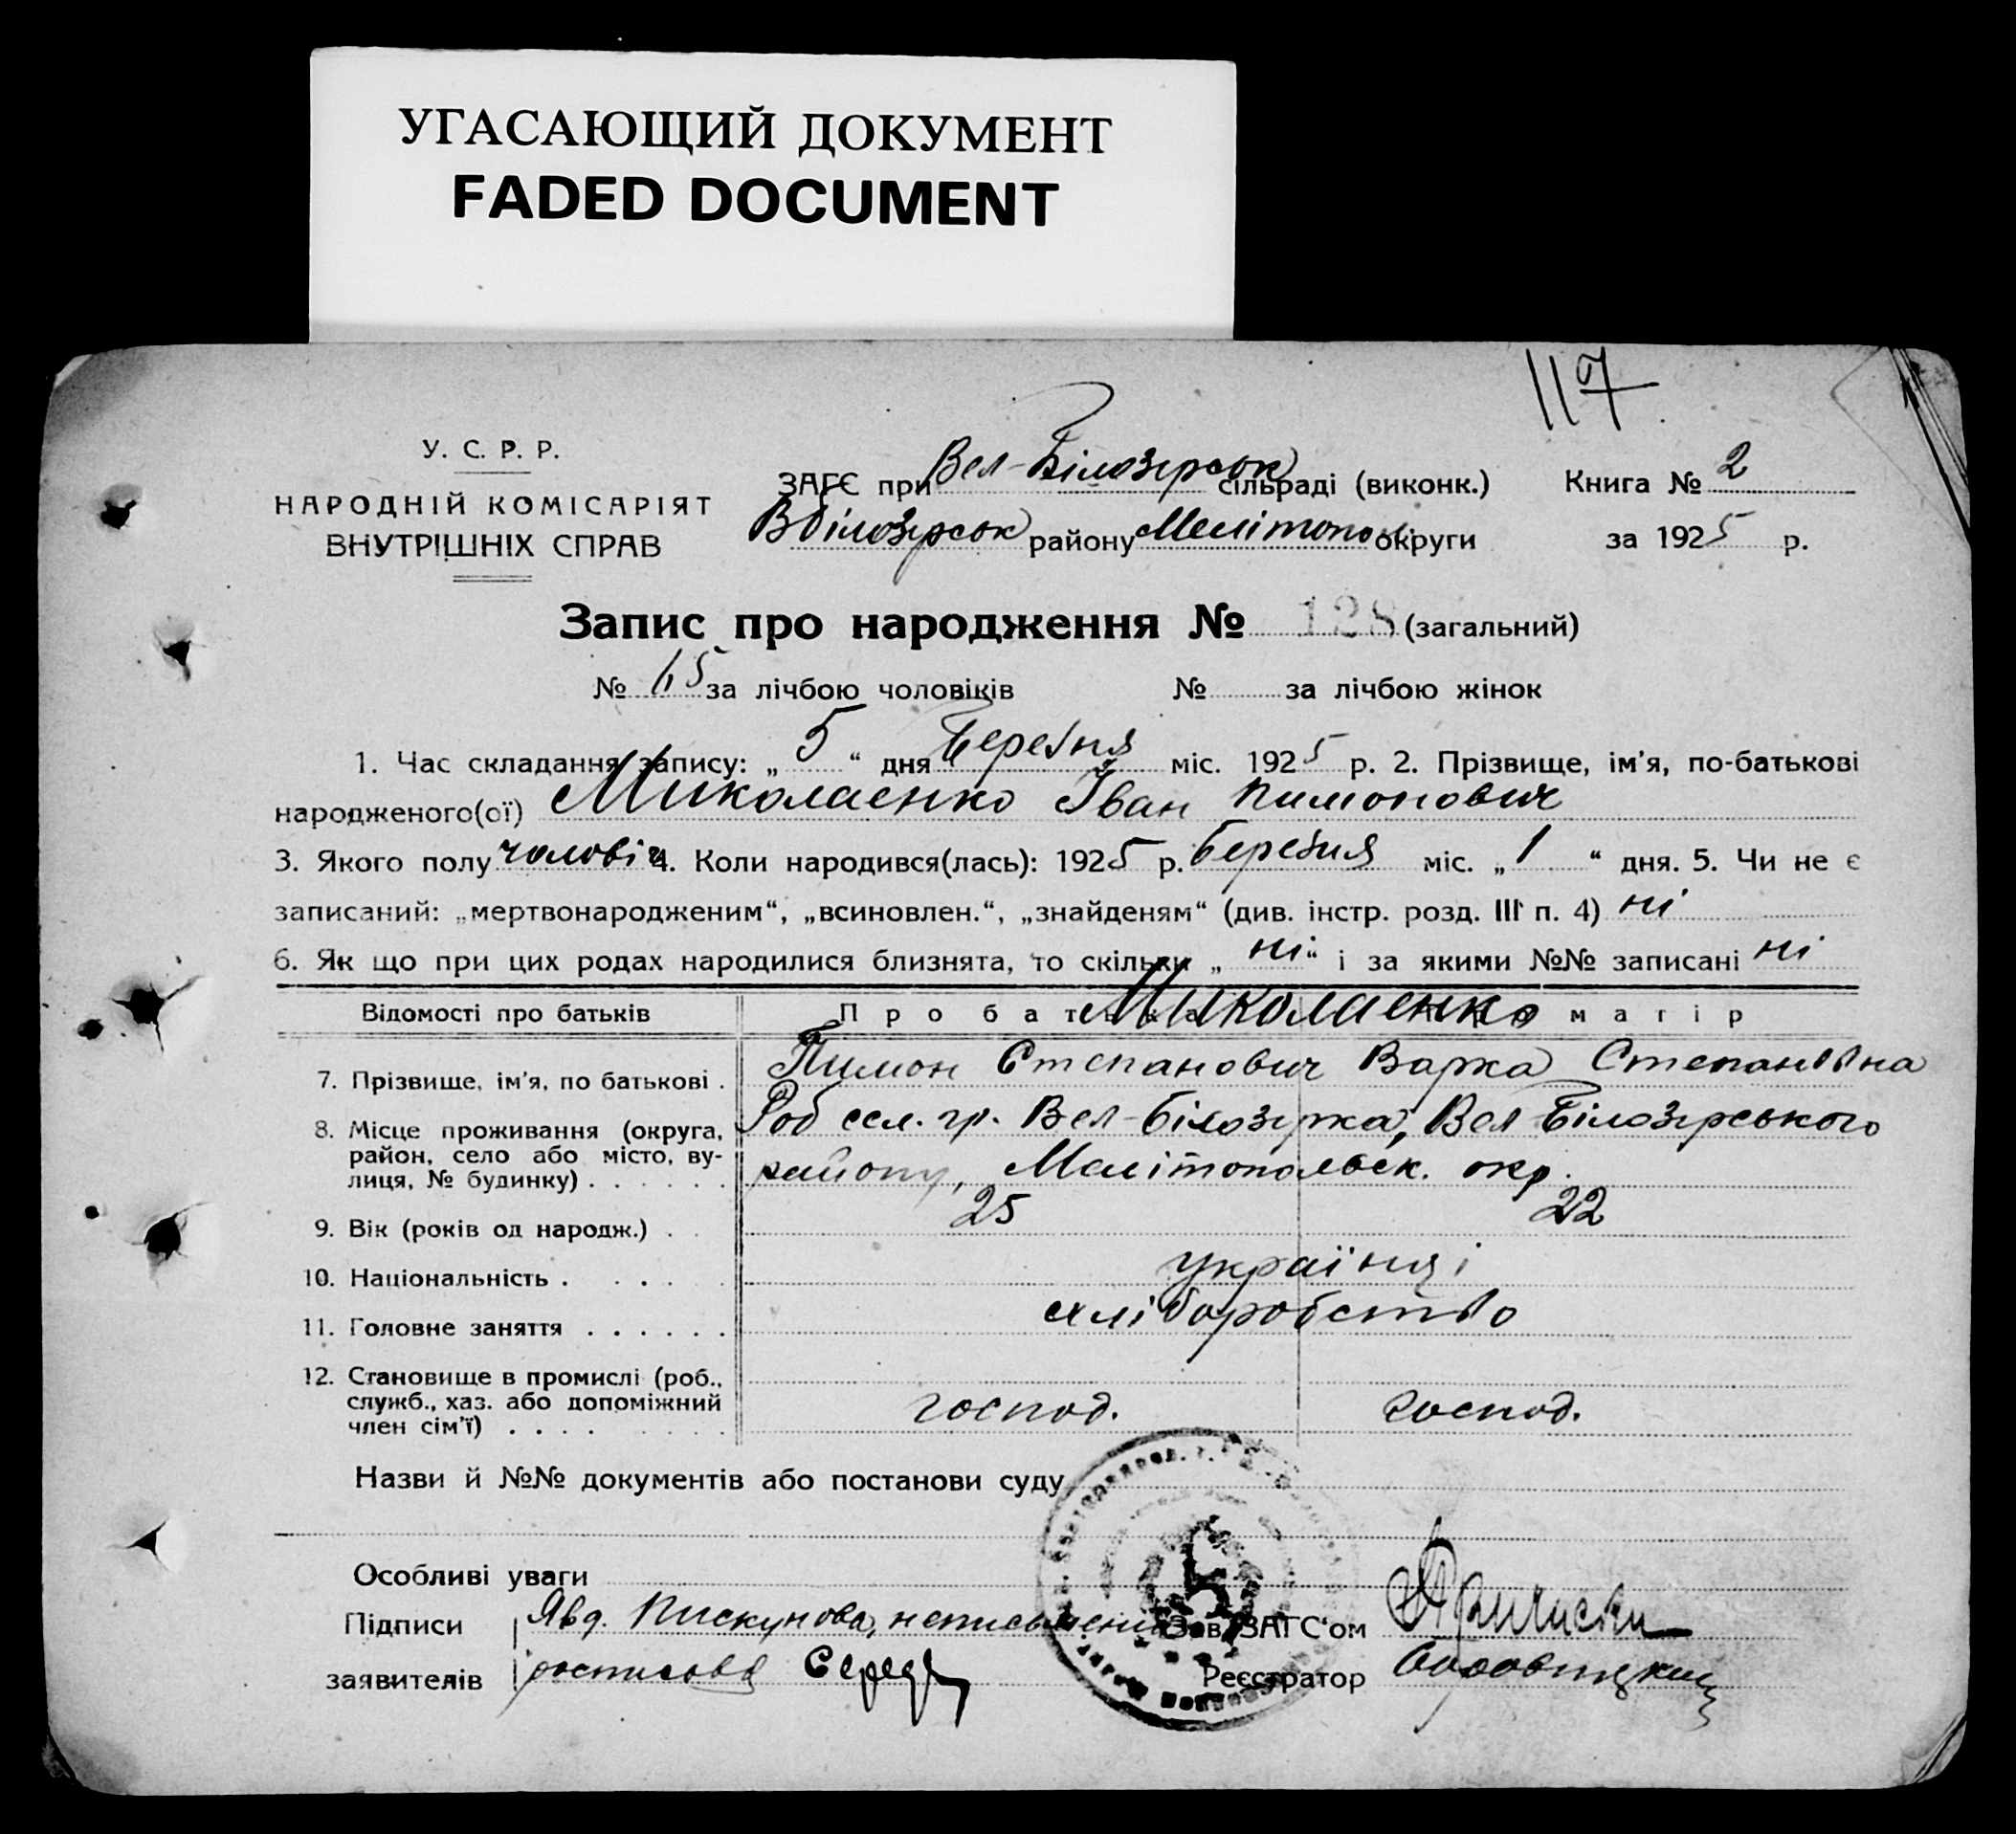 УГАСАЮЩИЙ ДОКУМЕНТ
FADED DOCUMENT
117
У. С. Р. Р.
НАРОДНІЙ КОМІСАРІЯТ
ВНУТРІШНІХ СПРАВ
ЗАГС при Вел-Білозірськ сільраді (виконк.) Книга № 2
ВБілозірськ району Мелітопол округи за 1925 р.
Запис про народження № 128 (загальний)
№ 65 за лічбою чоловіків № за лічбою жінок
1. Час складання запису: „ 5 “ дня Березня міс. 1925 р. 2. Прізвище, ім'я, по-батькові
народженого(ої) Миколаенко Іван Пимонович
3. Якого полу чоловіч 4. Коли народився(лась): 1925 р. березня міс. „ 1 “ дня. 5. Чи не є
записаний: „мертвонародженим“, „всиновлен.“, „знайденям“ (див. інстр. розд. III п. 4) ні
6. Як що при цих родах народилися близнята, то скільки „ ні “ і за якими №№ записані ні
Відомості про батьків Про бат Миколаенко матір
7. Прізвище, ім'я, по батькові . Пимон Степанович Варка Степанівна
8. Місце проживання (округа, район, село або місто, вулиця, № будинку) . . . . . . Роб сел. гр. Вел-білозірка, Вел Білозірського
району, Мелітопольськ. окр.
9. Вік (років од народж.) . . 25 22
10. Національність . . . . українці
11. Головне заняття . . . . . . хліборобство
12. Становище в промислі (роб.,
служб., хаз. або допоміжний
член сім'ї) . . . . господ. господ.
Назви й №№ документів або постанови суду
Особливі уваги
Підписи Явд. Пискунова, неписьмені Зав. ЗАГС'ом
заявителів росписова Середа Реєстратор